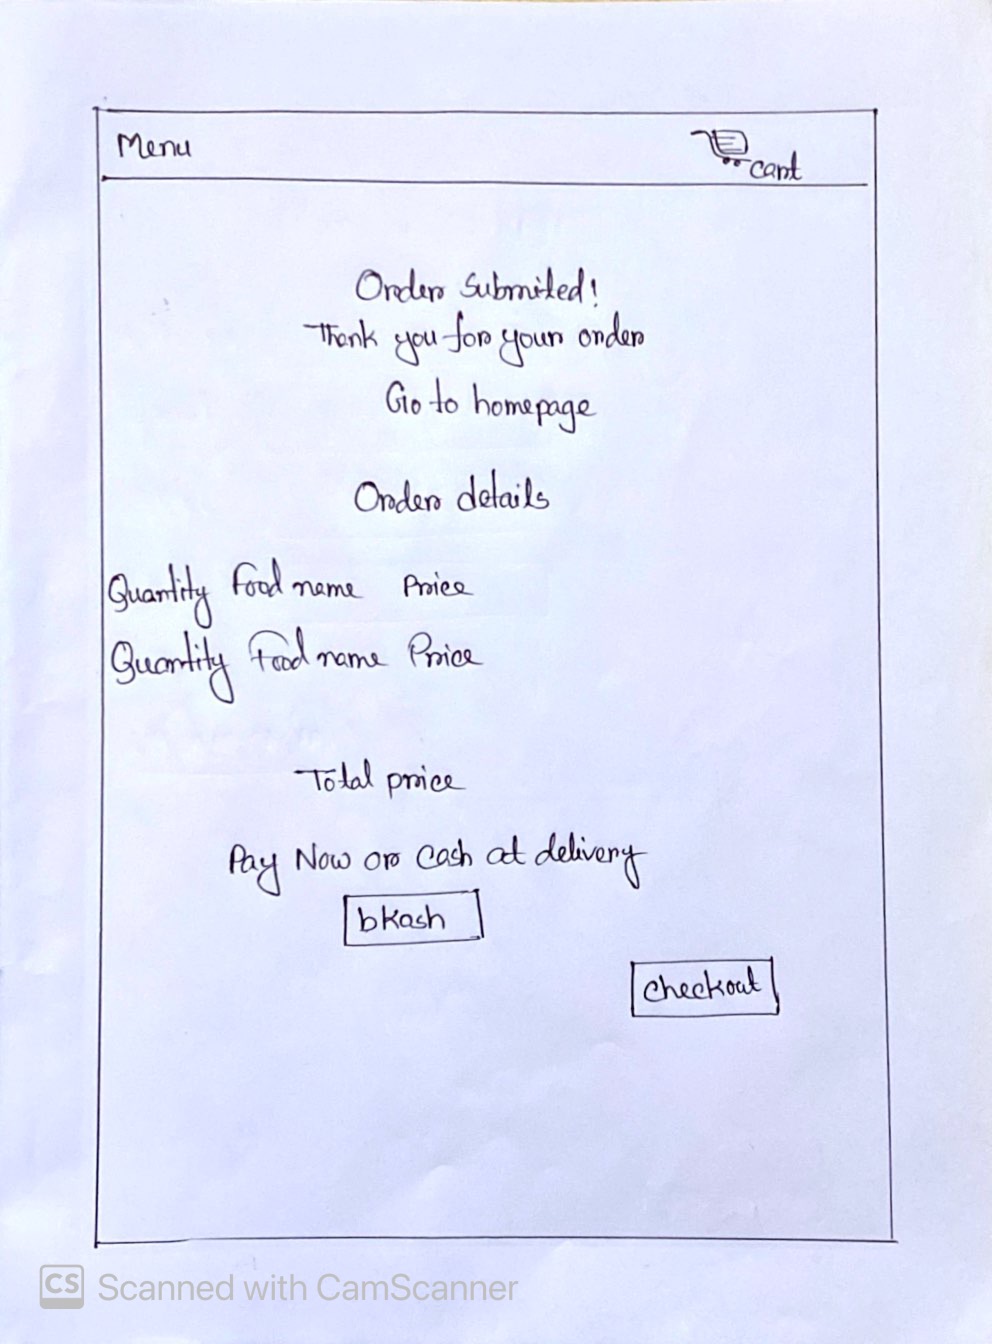 Menu
cart
Order Submited!
Thank you for your order
Go to homepage
Order details
Quantity Food name Price
Quantity Food name Price
Total price
Pay Now or Cash at delivery
bkash
checkout
CS Scanned with CamScanner